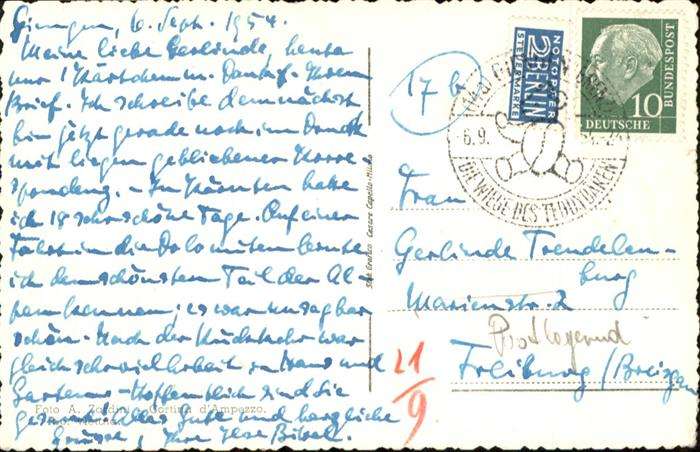 Giengen, 6. Sept. 1954.
Meine liebe Gerlinde, heute
nur 1 Kärtchen m. Dank f. Ihren
Brief. Ich schreibe demnächst
bin jetzt gerade noch im Druck
mit liegen gebliebener Korre-
spondenz. – In Kärnten hatte
ich 18 sehr schöne Tage. Auf einer
Fahrt in die Dolomiten lernte
ich den schönsten Teil der Al-
pen kennen; es war unsagbar
schön. Nach der Rückkehr war
gleich sehr viel Arbeit in Haus und
Garten. – Hoffentlich sind Sie
gesund. Alles Gute und herzliche
Grüsse, Ihre Ilse Bibel.
Foto A. Zardini - Cortina d'Ampezzo.
Stab. Grafico Cesare Capello - Milano
17 b
NOTOPFER
2 BERLIN
STEUERMARKE
10
DEUTSCHE
BUNDESPOST
6.9.
DIE WIEGE DES TEDDYBÄREN
Frau
Gerlinde Trendelen-
burg
Marienstr. 2
Postlagernd
Freiburg / Breisgau
21
9